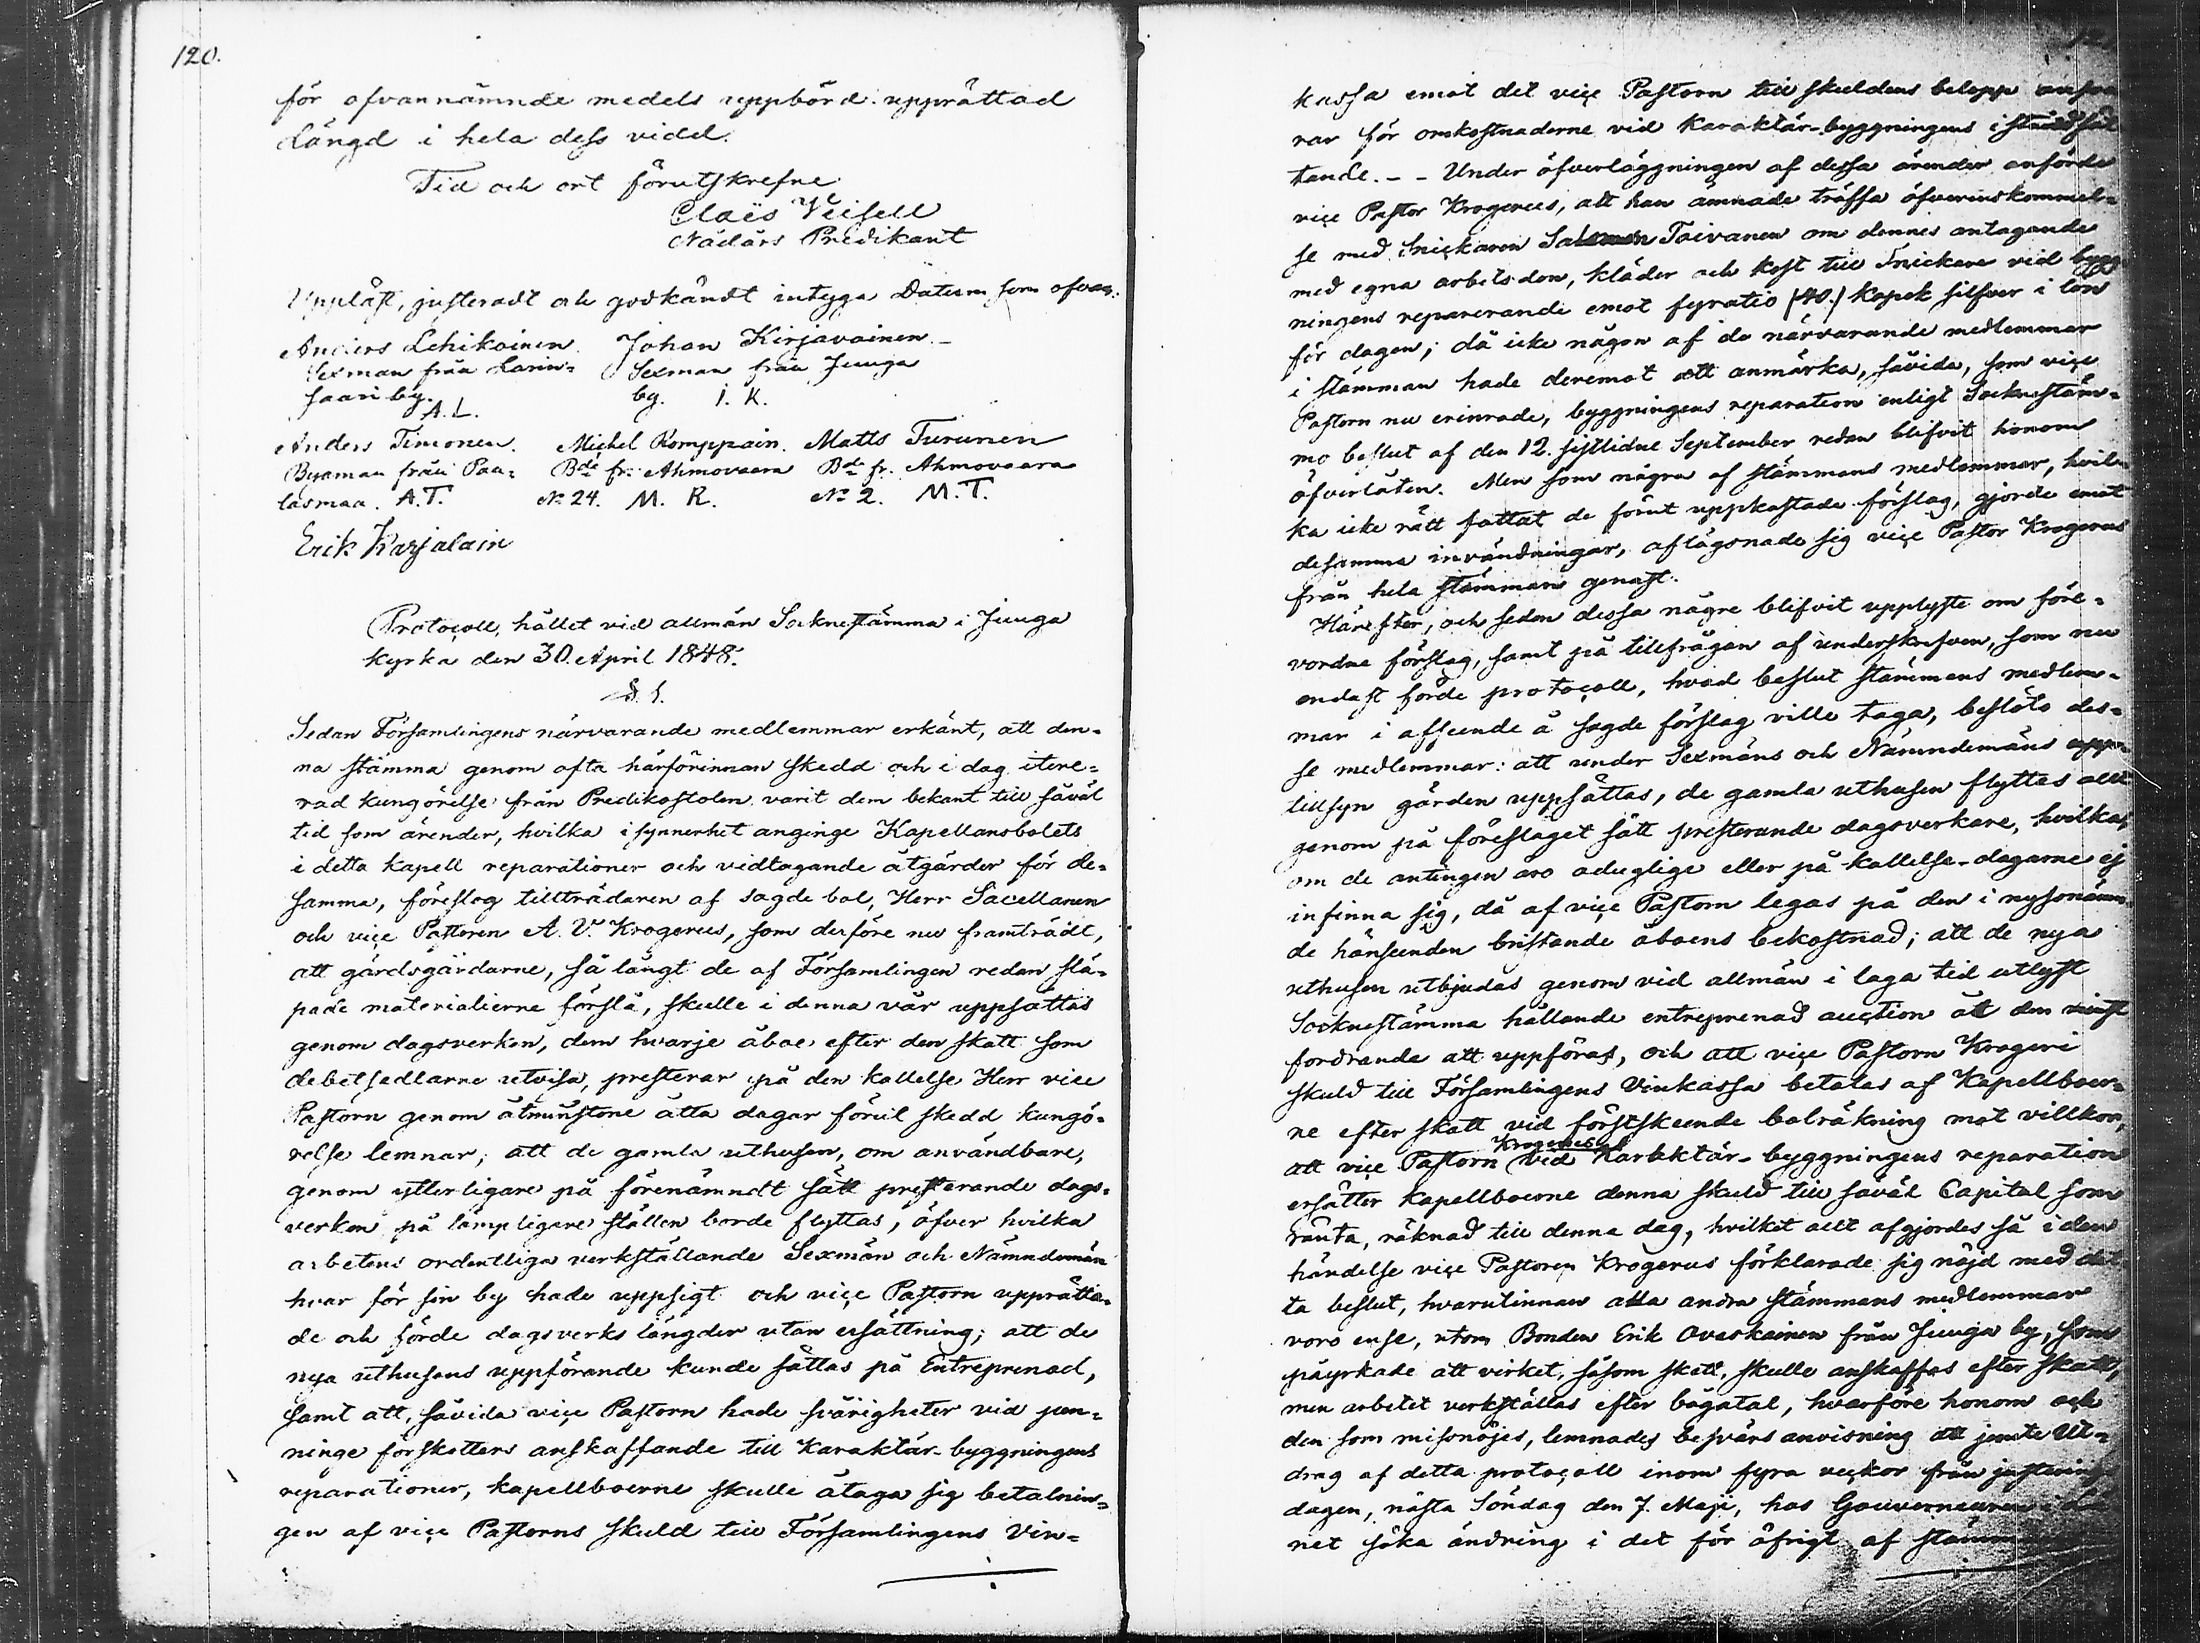 120.
för ofvannämnde medels uppbörd upprättad
Längd i hela dess vidd.
Tid och ort förutskrefne
Claës Veisell
Nådårs Predikant
Uppläst, justeradt och godkändt intyga Datum som ofvan.
Anders Lehikoinen. Johan Kirjavainen.
Sexman från Larin- Sexman från Juuga
saari by. by. I. K.
A. L.
Anders Timonen. Michel Romppain. Matts Turunen
Byaman från Paa- Bde fr: Ahmovaara Bde fr. Ahmovaara
lasmaa. A.T. No 24. M. R. No 2. M.T.
Erik Karjalain
Protocoll, hållet vid allmän Socknestämma i Juuga
kyrka den 30. April 1848.
§. 1.
Sedan Församlingens närvarande medlemmar erkänt, att den-
na stämma genom ofta härförinnan skedd och i dag itere-
rad kungörelse från Predikostolen varit dem bekant till såväl
tid som ärender, hvilka i synnerhet anginge Kapellansbolets
i detta kapell reparationer och vidtagande åtgärder för de-
samma, föreslog tillträdaren af sagde bol, Herr Sacellanen
och vice Pastoren A. V. Krogerus, som derföre nu framträdt,
att gärdsgårdarne, så långt de af Församlingen redan slä-
pade materialierne förslå, skulle i denna vår uppsättas
genom dagsverken, dem hvarje åboe efter den skatt som
debetsedlarne utvisa, presterar på den kallelse Herr vice
Pastorn genom åtminstone åtta dagar förut skedd kungö-
relse lemnar; att de gamla uthusen, om användbare,
genom ytterligare på förenämndt sätt presterande dags-
verken på lämpligare ställen borde flyttas, öfver hvilka
arbetens ordentliga verkställande Sexmän och Nämndemän
hvar för sin by hade uppsigt och vice Pastorn upprätta-
de och förde dagsverks längder utan ersättning; att de
nya uthusens uppförande kunde sättas på Entreprenad,
samt att, såvida vice Pastorn hade svårigheter vid pen-
ninge förskotters anskaffande till Karaktär-byggningens
reparationer, kapellboerne skulle åtaga sig betalnin-
gen af vice Pastorns skuld till Församlingens Vin-
kassa emot det vice Pastorn till skuldens belopp ansva
rar för omkostnaderne vid Karaktär-byggningens iståndsät
tande. - - Under öfverläggningen af dessa ärender anförde
vice Pastor Krogerus, att han ämnade träffa öfverinskommel-
se med Snickaren Salomon Toivanen om dennes antagande
med egna arbetsdon, kläder och kost till Snickare vid bygg
ningens reparerande emot fyratio (40.) kopek silfver i lön
för dagen; då icke någon af de närvarande medlemmar
i stämman hade deremot att anmärka, såvida, som vice
Pastorn nu erinrade, byggningens reparation enligt Socknestäm-
mo beslut af den 12. sistlidne September redan blifvit honom
öfverlåten. Men som några af stämmans medlemmar, hvil-
ka icke rätt fattat de förut uppkastade förslag, gjorde emot
desamma invändningar, aflägsnade sig vice Pastor Krogerus
från hela stämman genast.
Härefter, och sedan dessa någre blifvit upplyste om före-
vordne förslag, samt på tillfrågan af underskrefven, som nu
endast förde protocoll, hvad beslut stämmans medlem-
mar i afseende å sagde förslag ville taga, beslöto des-
se medlemmar: att under Sexmäns och Nämndemäns upp-
tillsyn gården uppsättas, de gamla uthusen flyttas allt
genom på föreslaget sätt presterande dagsverkare, hvilka,
om de antingen äro oduglige eller på kallelse-dagarne ej
infinna sig, då af vice Pastorn legas på den i nyssnämn-
de hänseenden bristande åboens bekostnad; att de nya
uthusen utbjudas genom vid allmän i laga tid utlyst
Socknestämma hållande entreprenad auction åt den minst
fordrande att uppföras, och att vice Pastorn Krogeri
skuld till Församlingens Vinkassa betalas af Kapellboer-
ne efter skatt vid förstskeende bolräkning mot villkor,
att vice Pastorn Krogerus vid Karaktär-byggningens reparation
ersätter kapellboerne denna skuld till såväl Capital som
ränta, räknad till denna dag, hvilket allt afgjordes så i den
händelse vice Pastoren Krogerus förklarade sig nöjd med det
ta beslut, hvarutinnan alla andra stämmans medlemmar
voro ense, utom Bonden Erik Ovaskainen från Juuga by, som
påyrkade att virket, såsom skett, skulle anskaffas efter skatt,
men arbetet verkställas efter bågatal, hvarföre honom och
den som missnöjes, lemnades besvärs anvisning att jemte Ut-
drag af detta protocoll inom fyra veckor från justerings
dagen, nästa Söndag den 7. Maji, hos Gouverneuren i
net söka ändring i det för öfrigt af